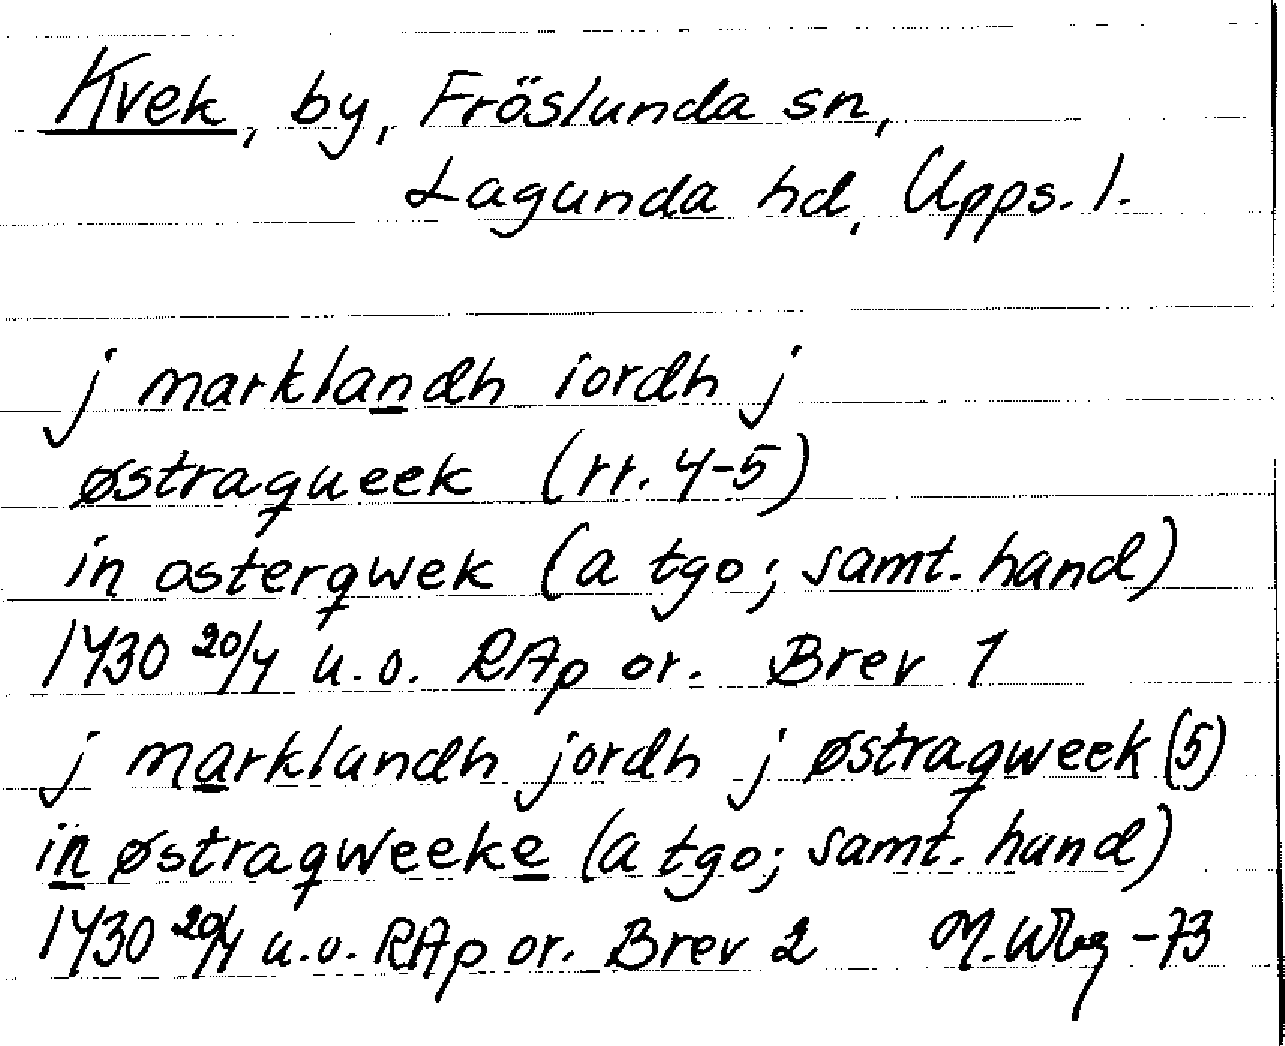 Kvek, by, Fröslunda sn,
Lagunda hd, Upps. l.
j marklandh iordh j
østraqueek (rr. 4-5)
in osterqwek (a tgo; samt. hand)
1430 20/4 u.o. RAp or. Brev 1
j marklandh jordh j østraqweek (5)
in østraqweeke (a tgo; samt. hand)
1430 20/4 u.o. RAp or. Brev 2 M. Wbg -73